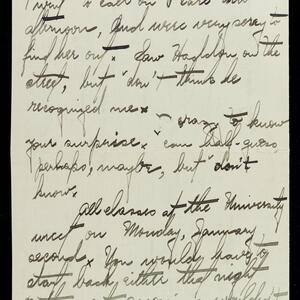 I went to call on Pearl
afternoon, And were very sorry to
find her out. Saw Haddon on the
street, but "don't" think he
recognized me.
crazy to know
your surprise. "can half-guess,
"perhaps, maybe, but "don't
know.
All classes at the University
meet on Monday, January
second. You would have to
start back, either the night